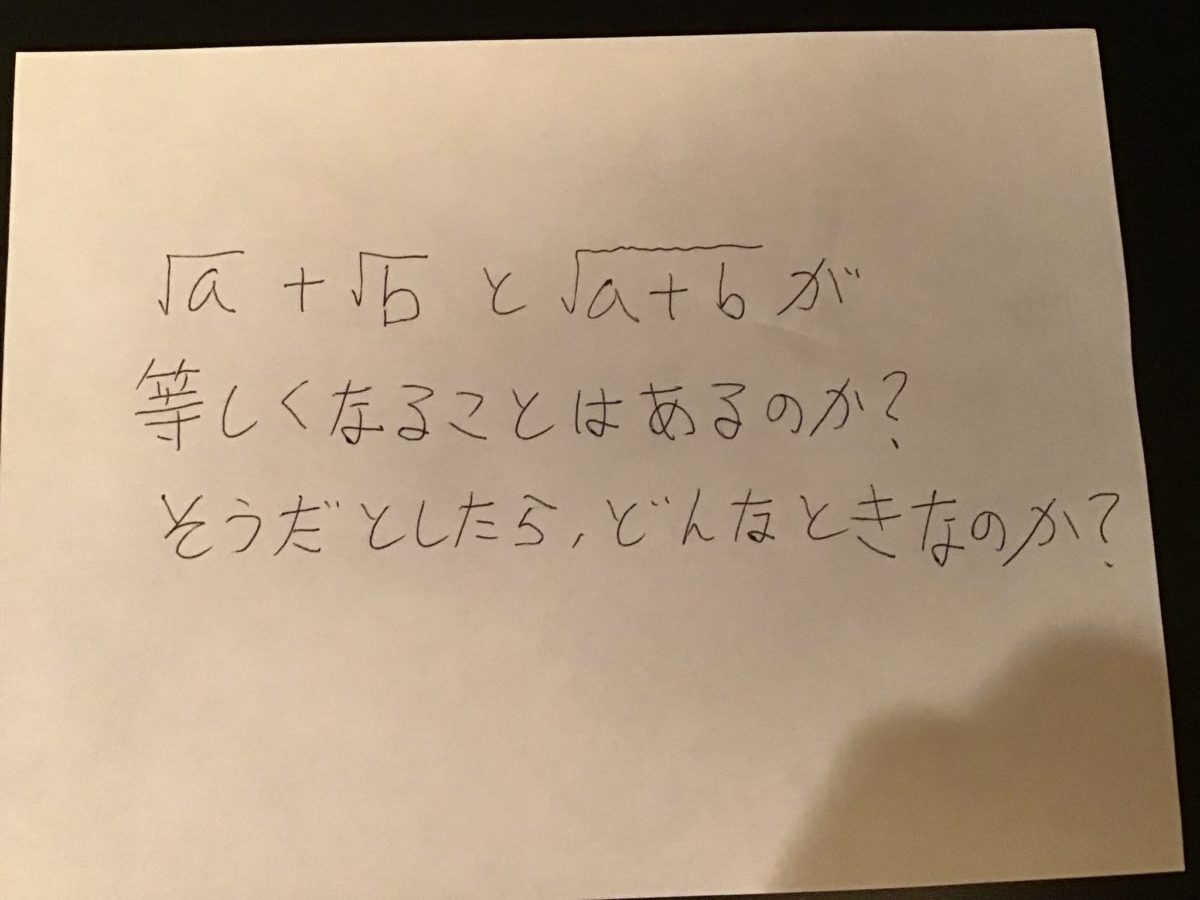 √a + √b と √(a+b) が
等しくなることはあるのか?
そうだとしたら,どんなときなのか?